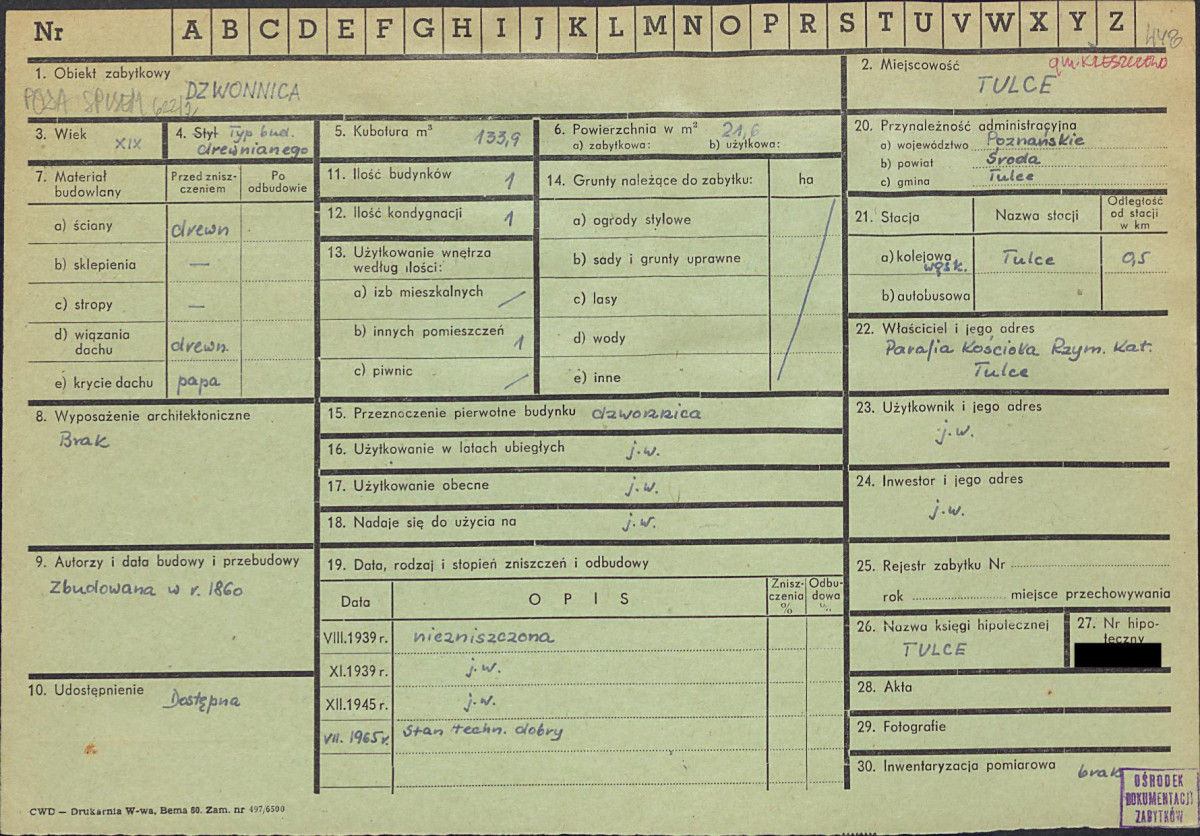 Nr A B C D E F G H I J K L M N O P R S T U V W X Y Z 448
1. Obiekt zabytkowy
DZWONNICA
POZA SPISEM
2. Miejscowość gm. KLESZCZEWO
TULCE
3. Wiek XIX
4. Styl Typ bud.
drewnianego
5. Kubatura m³ 133,9
6. Powierzchnia w m² 21,6
a) zabytkowa: b) użytkowa:
7. Materiał budowlany
Przed zniszczeniem
Po odbudowie
a) ściany drewn
b) sklepienia —
c) stropy —
d) wiązania dachu drewn.
e) krycie dachu papa
8. Wyposażenie architektoniczne
Brak
9. Autorzy i data budowy i przebudowy
Zbudowana w r. 1860
10. Udostępnienie Dostępna
11. Ilość budynków 1
12. Ilość kondygnacji 1
13. Użytkowanie wnętrza
według ilości:
a) izb mieszkalnych /
b) innych pomieszczeń 1
c) piwnic /
14. Grunty należące do zabytku: ha
a) ogrody stylowe
b) sady i grunty uprawne
c) lasy
d) wody
e) inne
15. Przeznaczenie pierwotne budynku dzwonnica
16. Użytkowanie w latach ubiegłych j.w.
17. Użytkowanie obecne j.w.
18. Nadaje się do użycia na j.w.
19. Data, rodzaj i stopień zniszczeń i odbudowy
Data OPIS Zniszczenia % Odbudowa %
VIII.1939 r. niezniszczona
XI.1939 r. j.w.
XII.1945 r. j.w.
VII. 1965 r. Stan techn. dobry
20. Przynależność administracyjna
a) województwo Poznańskie
b) powiat Środa
c) gmina Tulce
21. Stacja Nazwa stacji Odległość od stacji w km
a) kolejowa wąsk. Tulce 0,5
b) autobusowa
22. Właściciel i jego adres
Parafia Kościoła Rzym. Kat.
Tulce
23. Użytkownik i jego adres
j.w.
24. Inwestor i jego adres
j.w.
25. Rejestr zabytku Nr
rok miejsce przechowywania
26. Nazwa księgi hipotecznej
TULCE
27. Nr hipoteczny
28. Akta
29. Fotografie
30. Inwentaryzacja pomiarowa brak
OŚRODEK
DOKUMENTACJI
ZABYTKÓW
CWD — Drukarnia W-wa, Bema 60. Zam. nr 497/6500